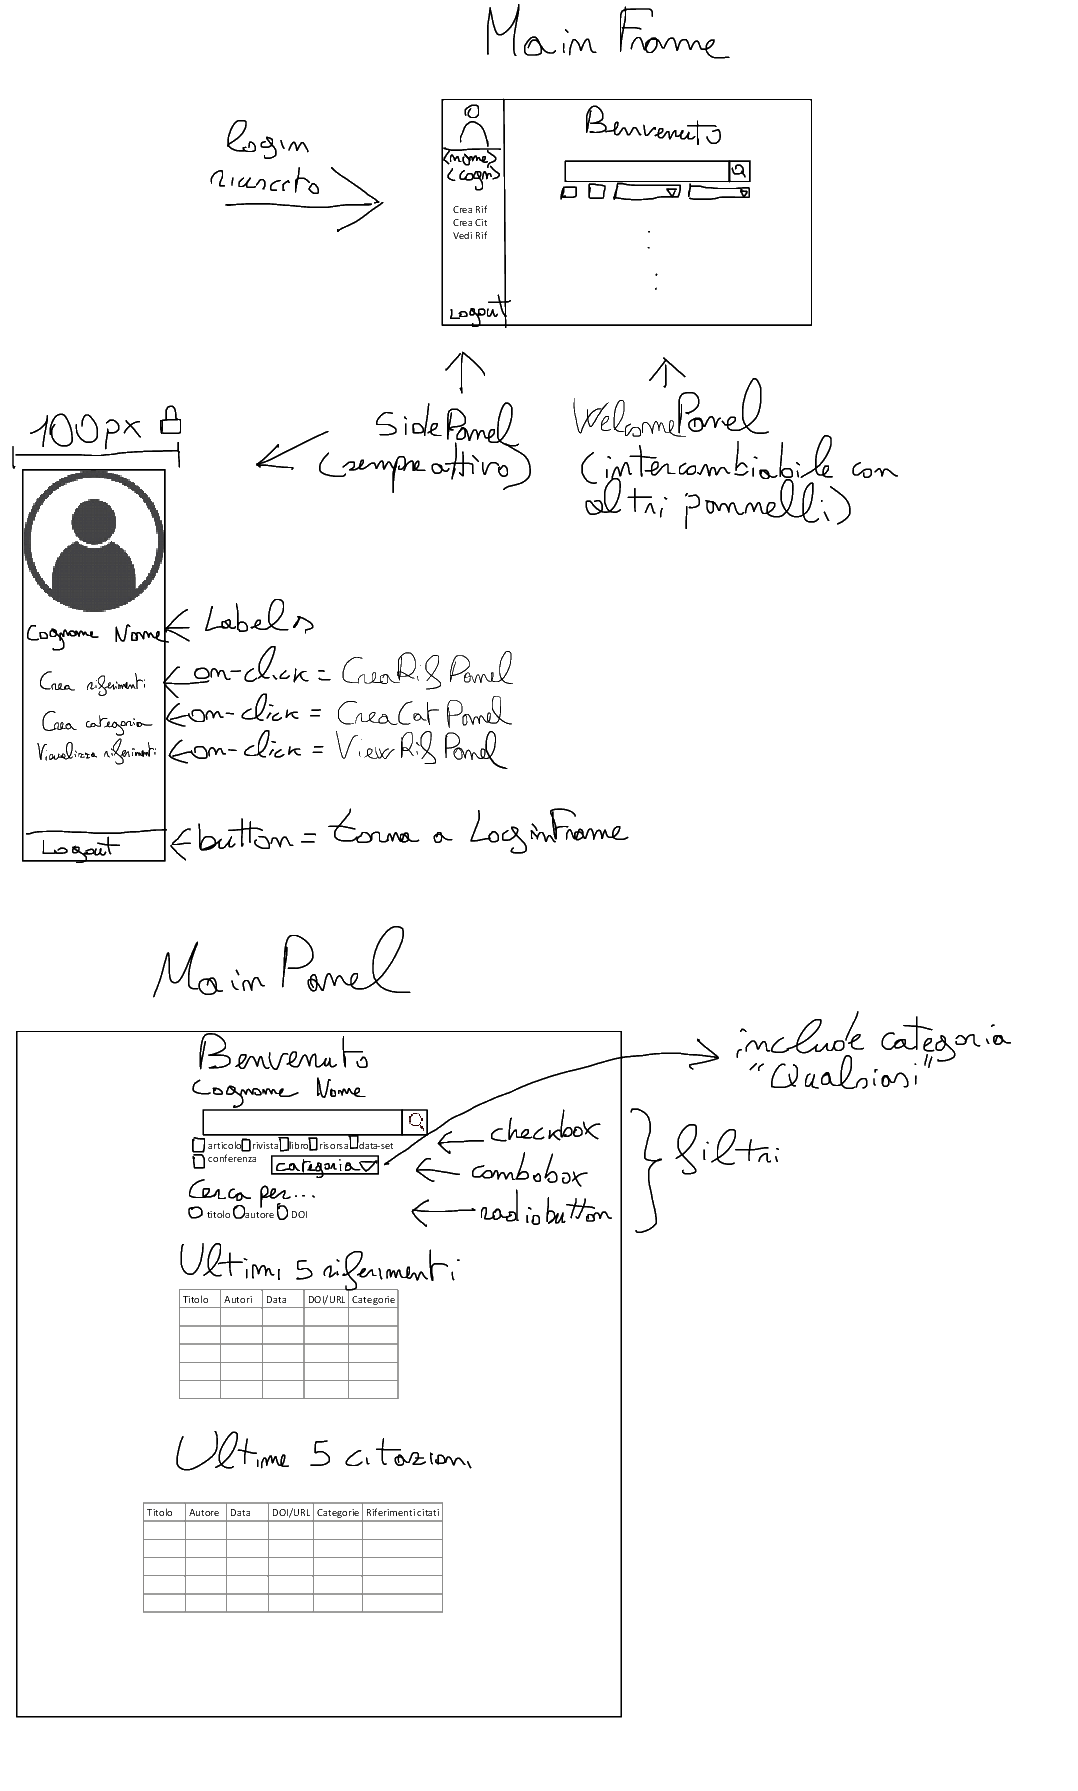 Main Frame
login
riuscito
Benvenuto
<nome>
<cogn>
Crea Rif
Crea Cit
Vedi Rif
Logout
SidePanel
(sempre attivo)
WelcomePanel
(intercambiabile con
altri pannelli)
100px
Cognome Nome
Labels
Crea riferimenti
on-click = CreaRifPanel
Crea categoria
on-click = CreaCatPanel
Visualizza riferimenti
on-click = ViewRifPanel
Logout
button = torna a LoginFrame
Main Panel
Benvenuto
Cognome Nome
include categoria
"Qualsiasi"
articolo rivista libro risorsa data-set
checkbox
conferenza
categoria
combobox
filtri
Cerca per...
titolo autore DOI
radiobutton
Ultimi 5 riferimenti
Titolo Autori Data DOI/URL Categorie
Ultime 5 citazioni
Titolo Autore Data DOI/URL Categorie Riferimenti citati